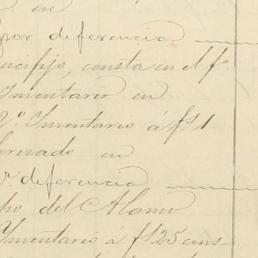 en
por diferencia
rucifijo, consta en el fº
Inventario en
2º Inventario á fs 1
en
r diferencia
ho del Alamo
Inventario á fs 25 cons